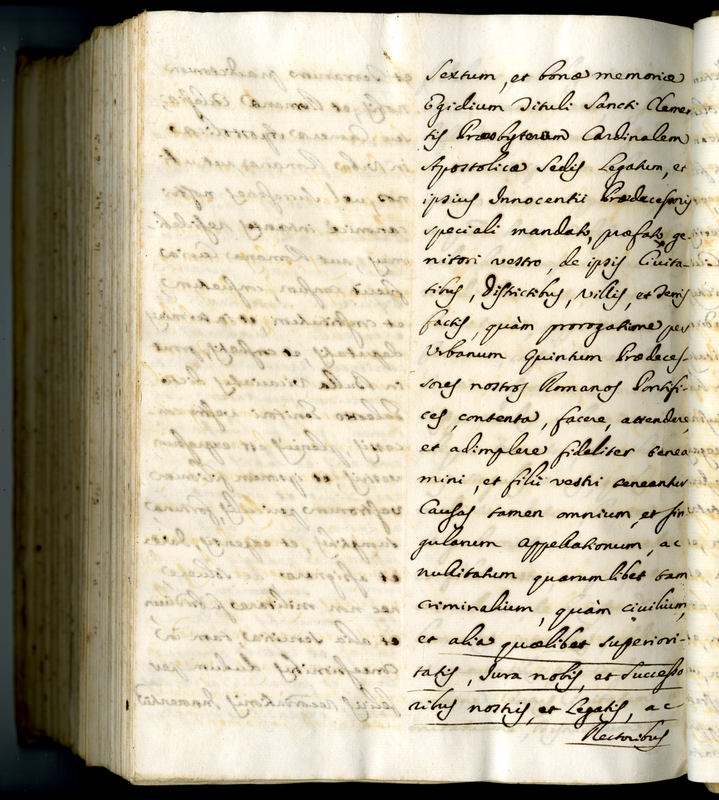 Sextum, et bonæ memoriæ
Egidium Tituli Sancti Clemen
tis Præsbyterum Cardinalem
Apostolicæ Sedis Legatum, et
ipsius Innocentii Prædecessoris
speciali mandato, præfato ge-
nitori vestro, de ipsis Civita-
tibus, Districtibus, Villis, et Terris
factis, quàm prorogatione per
Urbanum Quintum Prædeces-
sores nostros Romanos Pontifi-
ces, contenta, facere, attendere,
et adimplere fideliter tenea
mini, et filii vestri teneantur
Causas tamen omnium, et sin
gularum Appellationum, ac
nullitatum quarumlibet tam
criminalium, quàm civilium,
et alia quælibet superiori-
tatis, Jura nobis, et Successo
ribus nostris, et Legatis, ac
Rectoribus